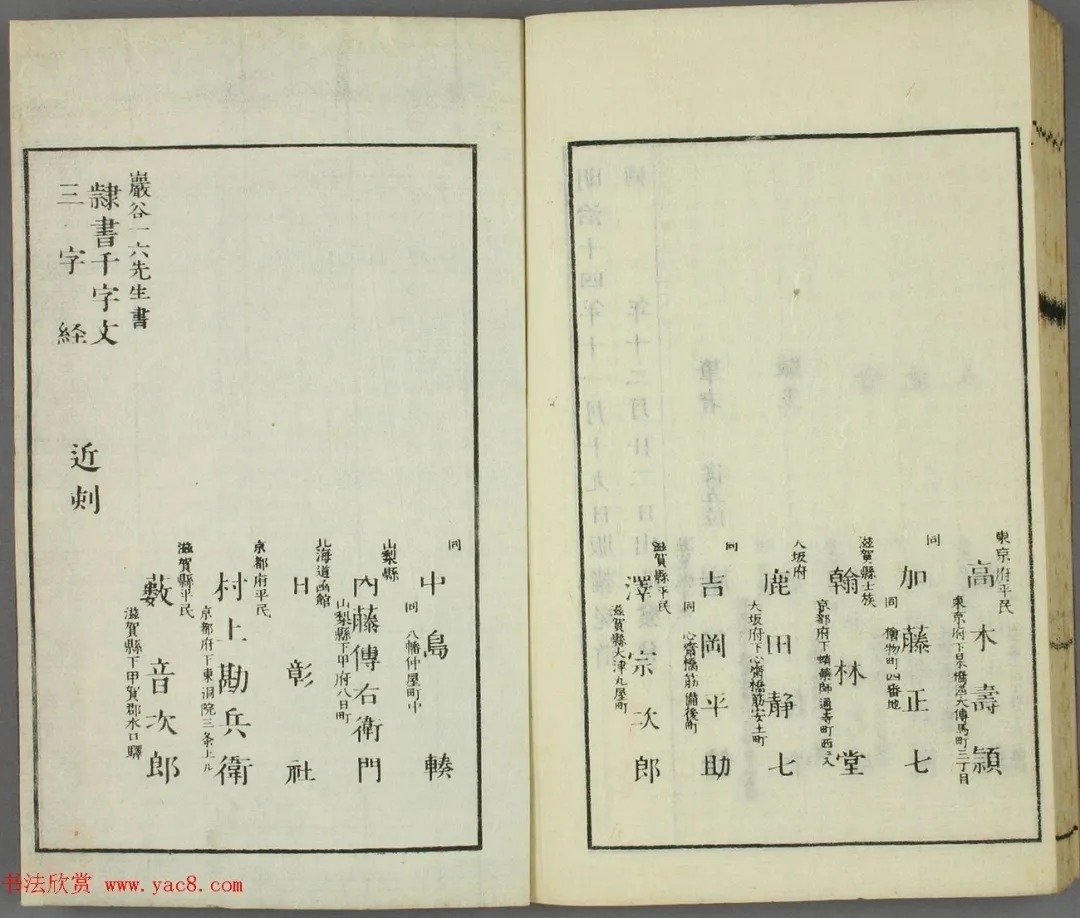 東京府平民
東京府下日本橋區大傳馬町三丁目
高木壽頴
同
同　檜物町四番地
加藤正七
滋賀縣士族
京都府下蛸藥師通寺町西ヱ入
翰林堂
大坂府
大坂府下心齋橋筋安土町
鹿田静七
同
同　心齋橋筋備後町
吉岡平助
滋賀縣平民
滋賀縣大津丸屋町
澤宗次郎
同
同　八幡仲屋町中
中島
山梨縣
山梨縣下甲府八日町
内藤傳右衛門
北海道函館
日彰社
京都府平民
京都府下東洞院三条上ル
村上勘兵衛
滋賀縣平民
滋賀縣下甲賀郡水口驛
藪音次郎
巖谷一六先生書
隸書千字文
三字経
近刺
明治十四年十一月十九日版權免許
同　年十二月廿二日出
书法欣赏 www.yac8.com